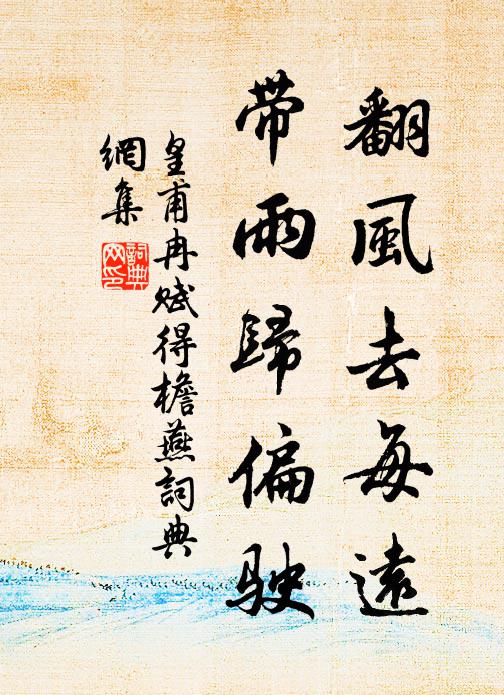 翻風去每遠
带雨歸偏駛
皇甫冉赋得檐燕詞典
網集
詞典
网印